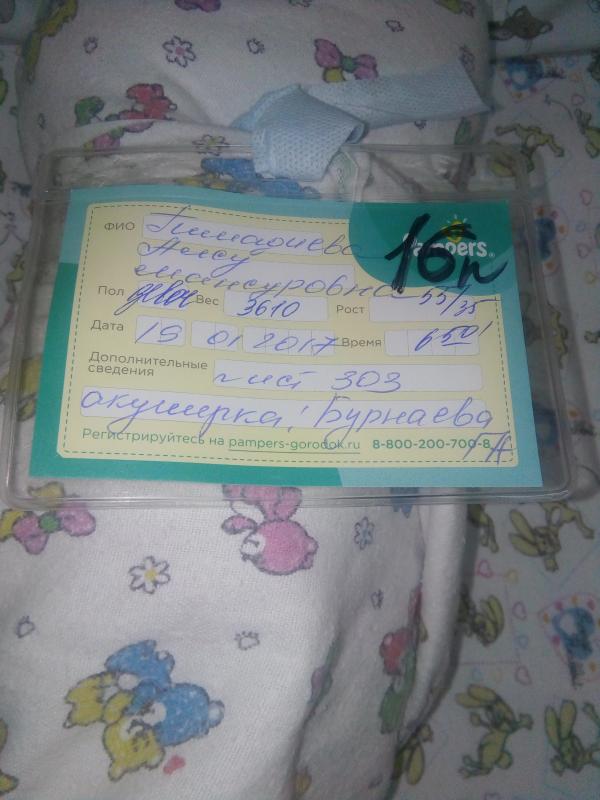 Pampers®
16п
ФИО Гимадиева
Алсу
Мансуровна
Пол девоч Вес 3610 Рост 55/35
Дата 19 01 2017 Время 6 50
Дополнительные
сведения
лист 303
акушерка: Бурнаева
Регистрируйтесь на pampers-gorodok.ru 8-800-200-700-8